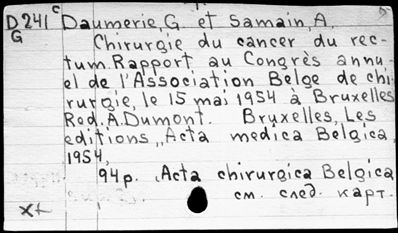 D241 c Daumerie, G. et Samain, A.
G Chirurgie du cancer du rec-
tum. Rapport au Congrès annu-
el de l'Association Belge de chi-
rurgie, le 15 mai 1954 à Bruxelles
Red. A. Dumont. Bruxelles, Les
editions „Acta medica Belgica,
1954,
94p. „Acta chirurgica Belgica
см. след. карт.